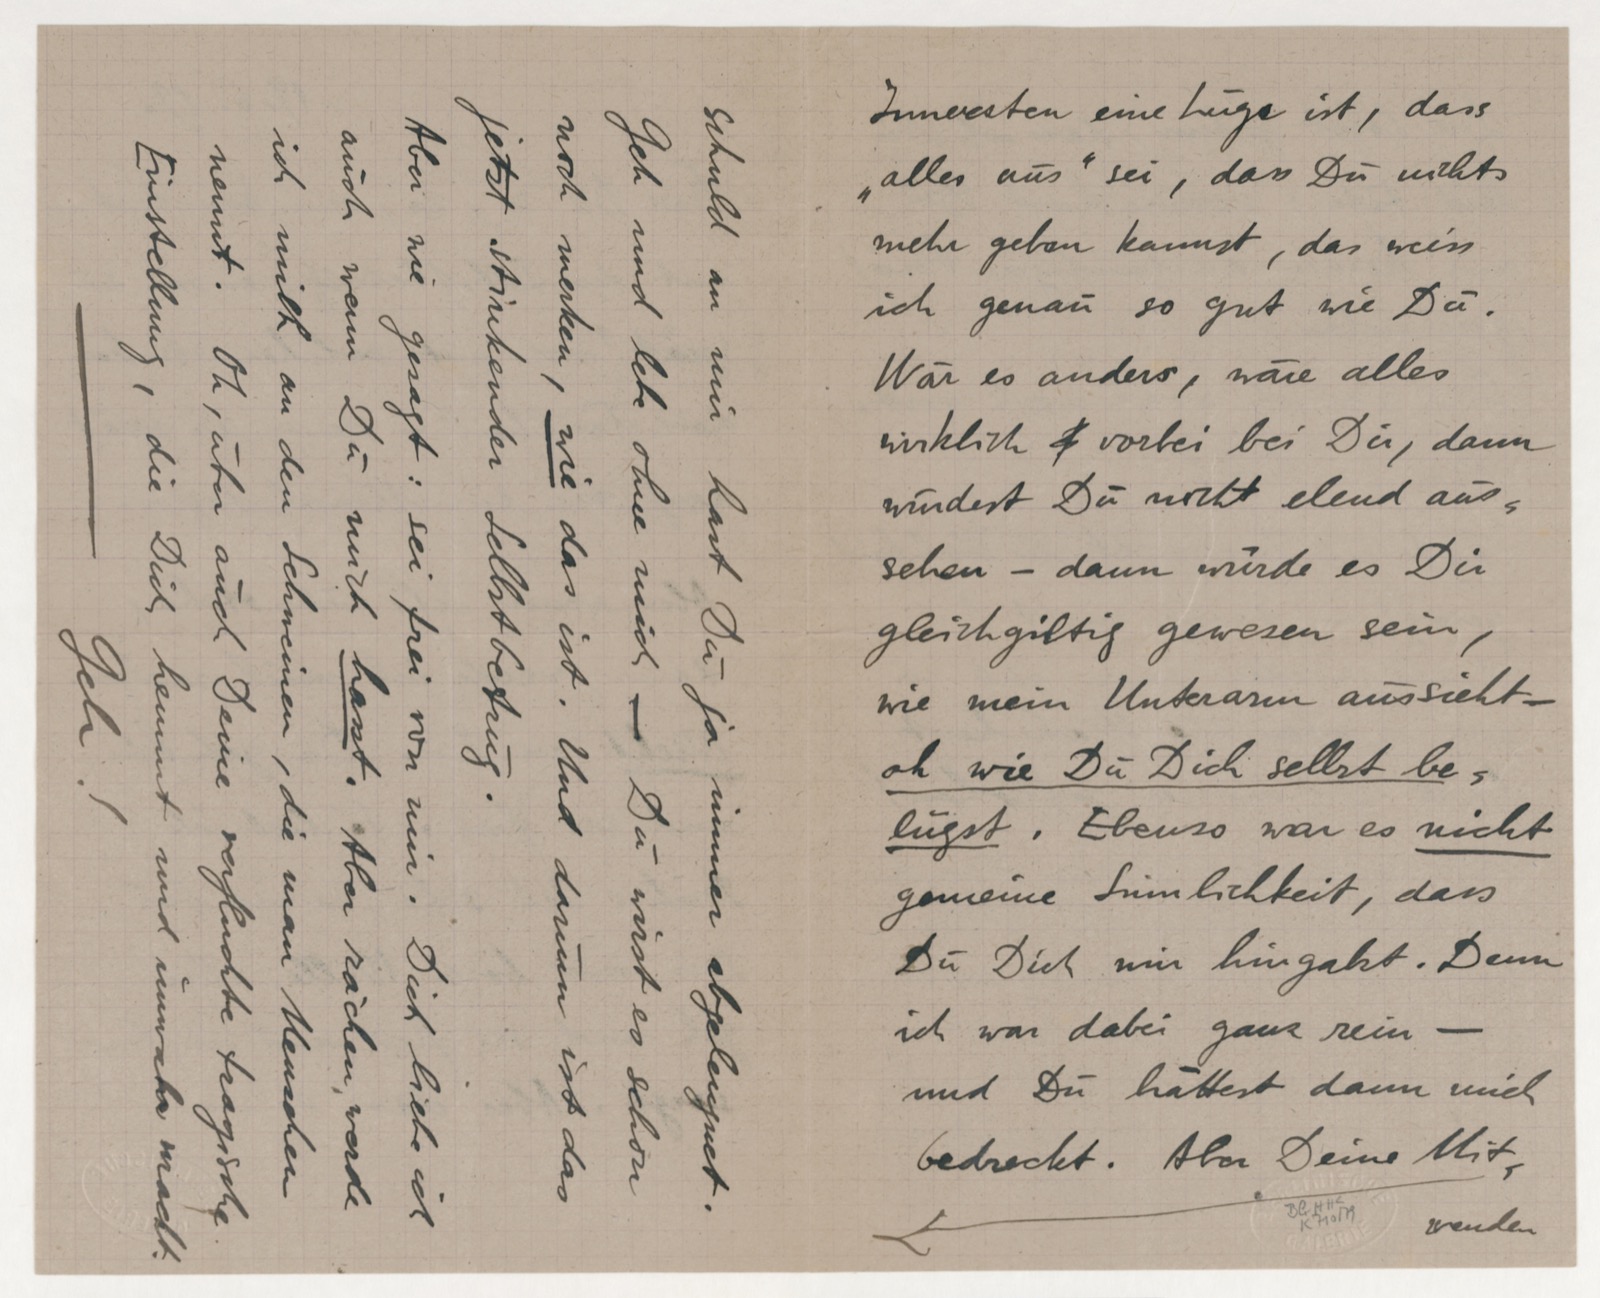 Innersten eine Lüge ist, dass
„alles aus" sei, dass Du nichts
mehr geben kannst, das weiss
ich genau so gut wie Du.
Wär es anders, wäre alles
wirklich vorbei bei Dir, dann
würdest Du nicht elend aus-
sehen – dann würde es Dir
gleichgiltig gewesen sein,
wie mein Unterarm aussieht –
oh wie Du Dich selbst be-
lügst. Ebenso war es nicht
gemeine Sinnlichkeit, dass
Du Dich mir hingabst. Denn
ich war dabei ganz rein –
und Du hättest dann mich
bedreckt. Aber Deine Mit-
wenden
schuld an mir hast Du ja immer abgeleugnet.
Geh und leb ohne mich – Du wirst es schon
noch merken, wie das ist. Und darum ist das
jetzt stinkender Selbstbetrug.
Aber wie gesagt: sei frei von mir. Dich liebe ich
auch wenn Du mich hasst. Aber rächen, werde
ich mich an den Schweinen, die man Menschen
nennt. Oh, über auch Deine verfluchte tragische
Einstellung, die Dich hemmt und unwahr macht.
Geh!